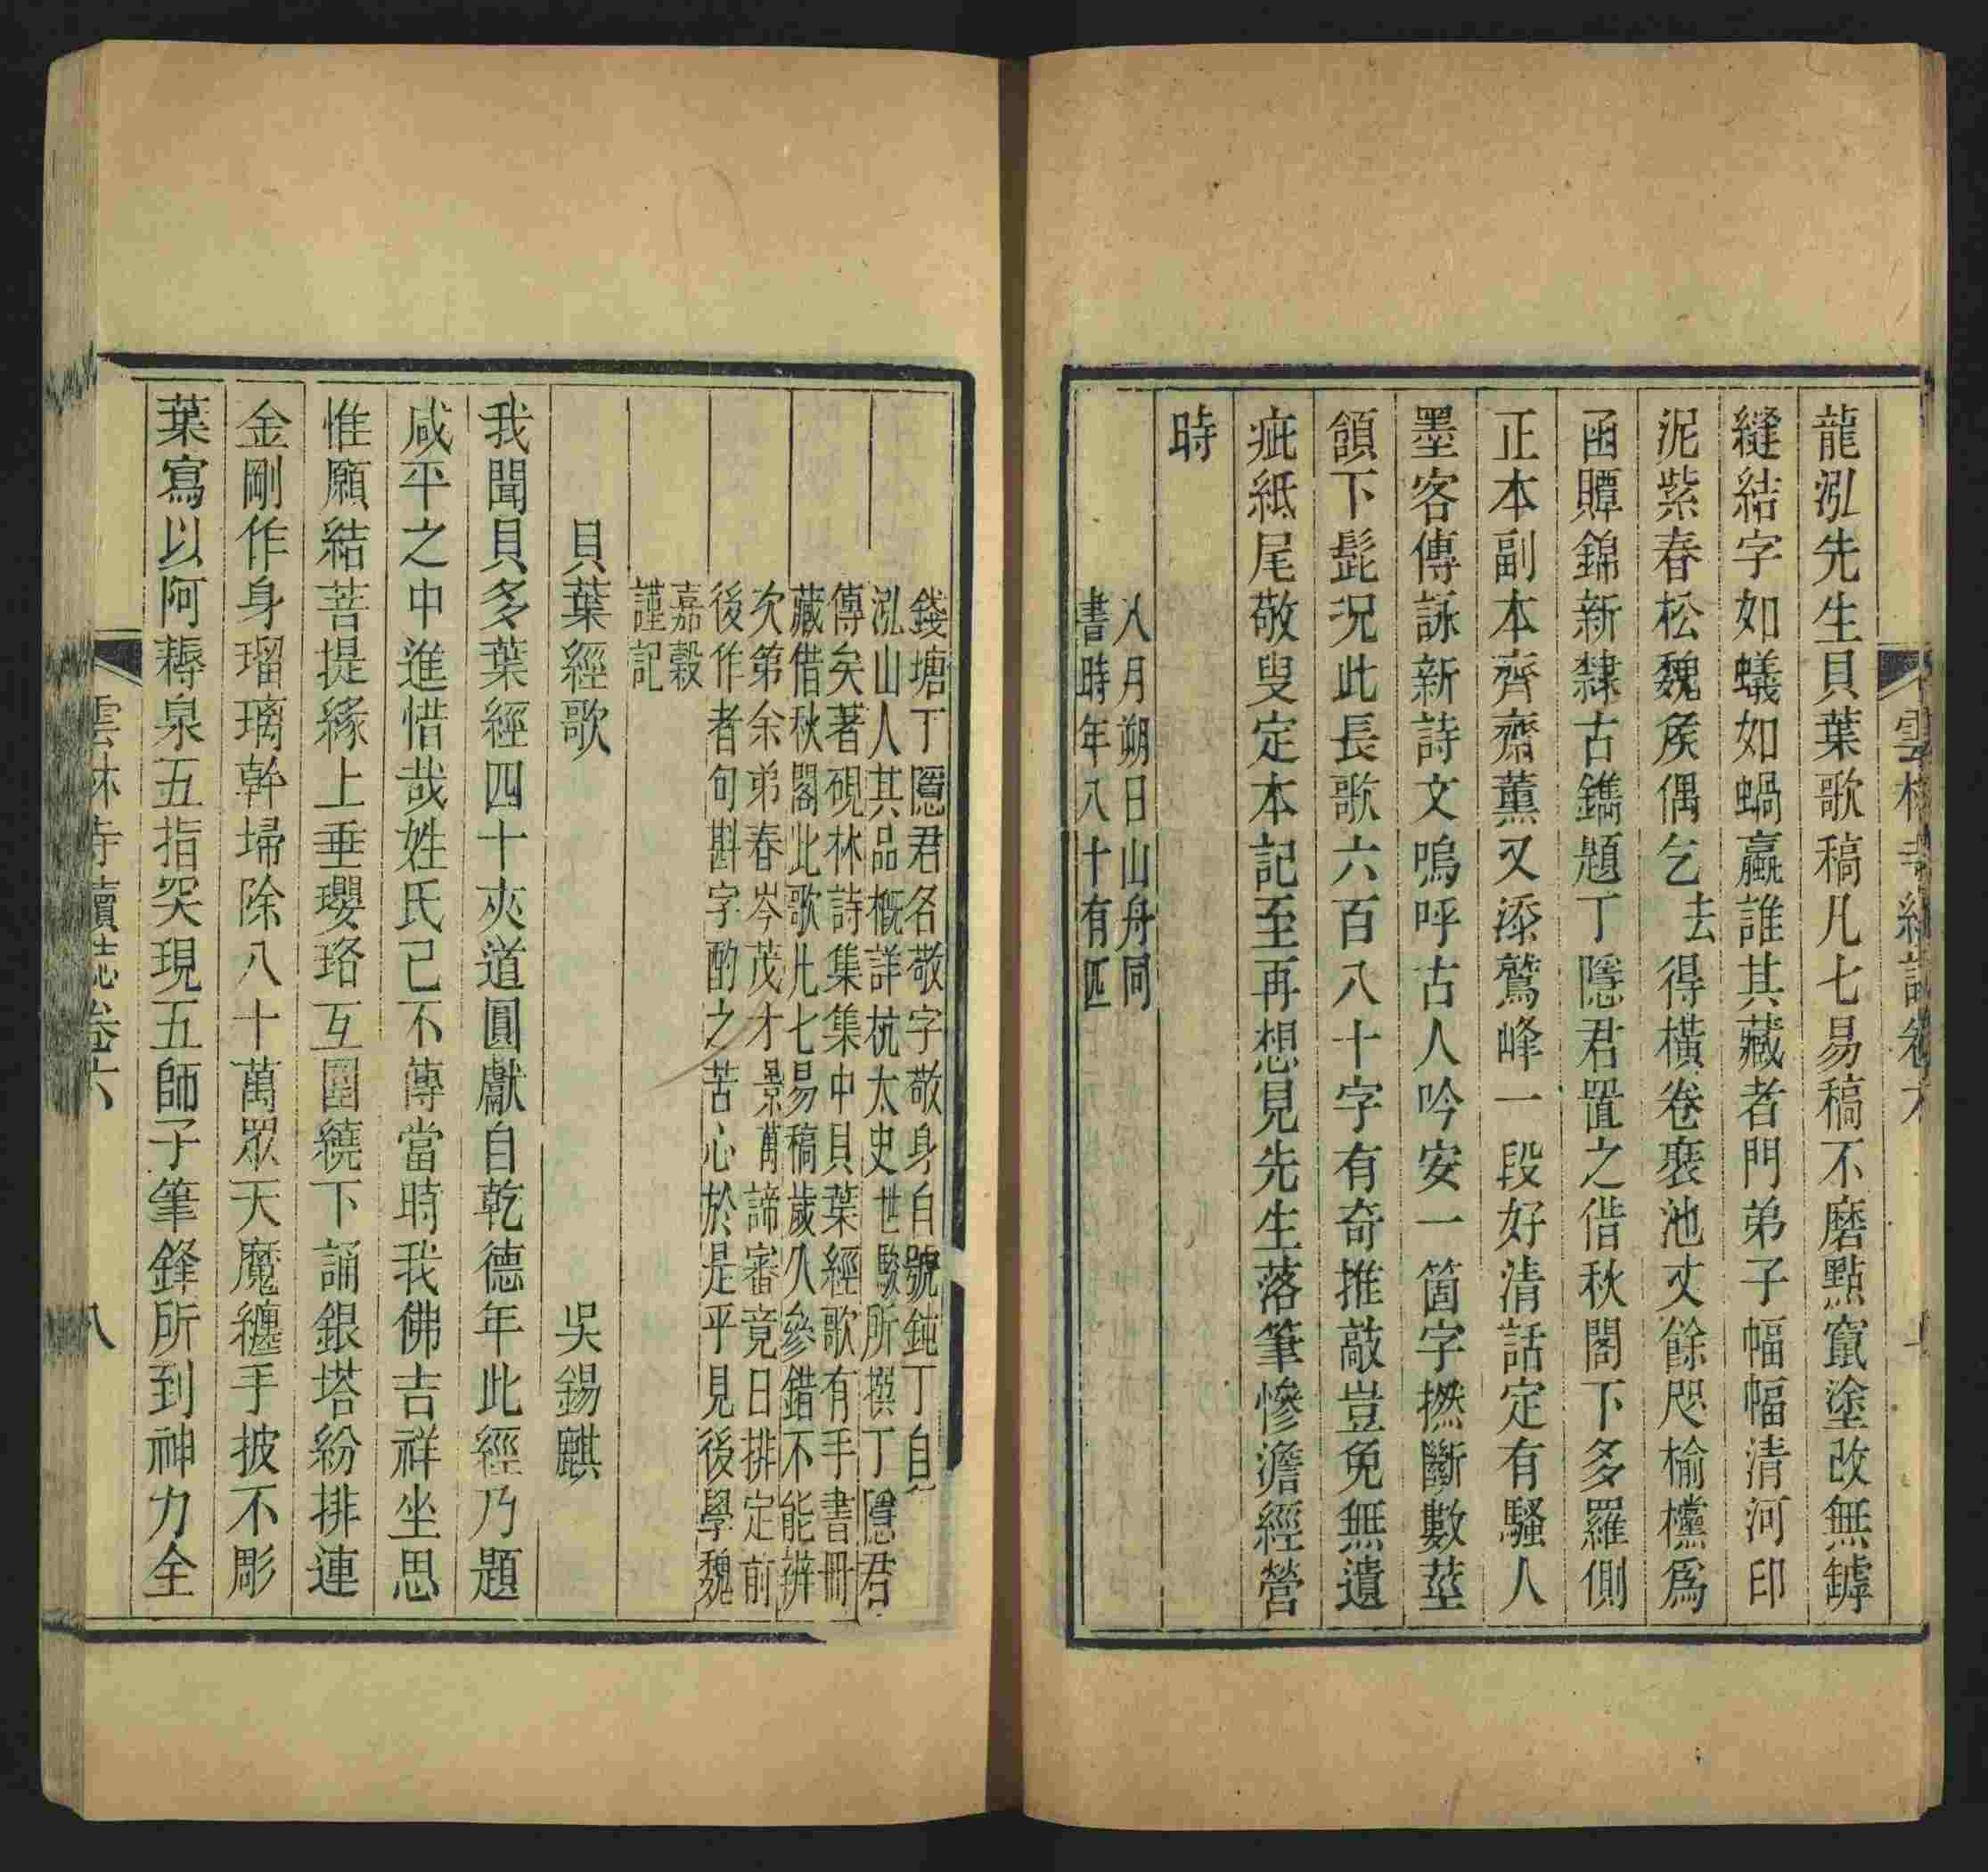 龍泓先生貝葉歌稿凡七易稿不磨點竄塗改無罅
縫結字如蟻如蝸蠃誰其藏者門弟子幅幅清河印
泥紫春松魏矦偶乞去得橫卷裹池丈餘咫榆欓爲
函贉錦新隸古鐫題丁隱君置之偕秋閣下多羅側
正本副本齊齋薰又添鷲峰一段好清話定有騷人
墨客傳詠新詩文嗚呼古人吟安一箇字撚斷數莖
頷下髭況此長歌六百八十字有奇推敲豈免無遺
疵紙尾敬叟定本記至再想見先生落筆慘澹經營
時
八月朔日山舟同
書時年八十有四
錢塘丁隱君名敬字敬身自號鈍丁自
泓山人其品概詳杭太史世駿所撰丁隱君
傳矣著硯林詩集集中貝葉經歌有手書冊
藏借秋閣此歌凡七易稿歲久參錯不能辨
次第余弟春岑茂才景萬諦審竟日排定前
後作者句斟字酌之苦心於是乎見後學魏
嘉穀
謹記
貝葉經歌 吳錫麒
我聞貝多葉經四十夾道圓獻自乾德年此經乃題
咸平之中進惜哉姓氏已不傳當時我佛吉祥坐思
惟願結菩提緣上垂瓔珞互圍繞下誦銀塔紛排連
金剛作身瑠璃幹埽除八十萬眾天魔纏手披不彫
葉寫以阿耨泉五指突現五師子筆鋒所到神力全
雲林寺續誌卷六 八